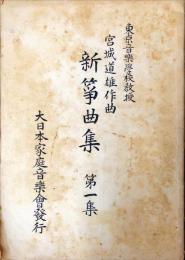 東京音樂學校教授
宮城道雄作曲
新箏曲集 第一集
大日本家庭音樂會發行